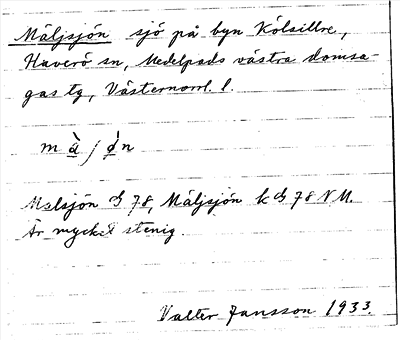 Mäljsjön sjö på byn Kölsillre,
Haverö sn, Medelpads västra domsa-
gas tg, Västernorrl. l.
m à̱ / ǿ̱ n
Malsjön 78, Mäljsjön k 78 NM.
Är mycket stenig.
Valter Jansson 1933.